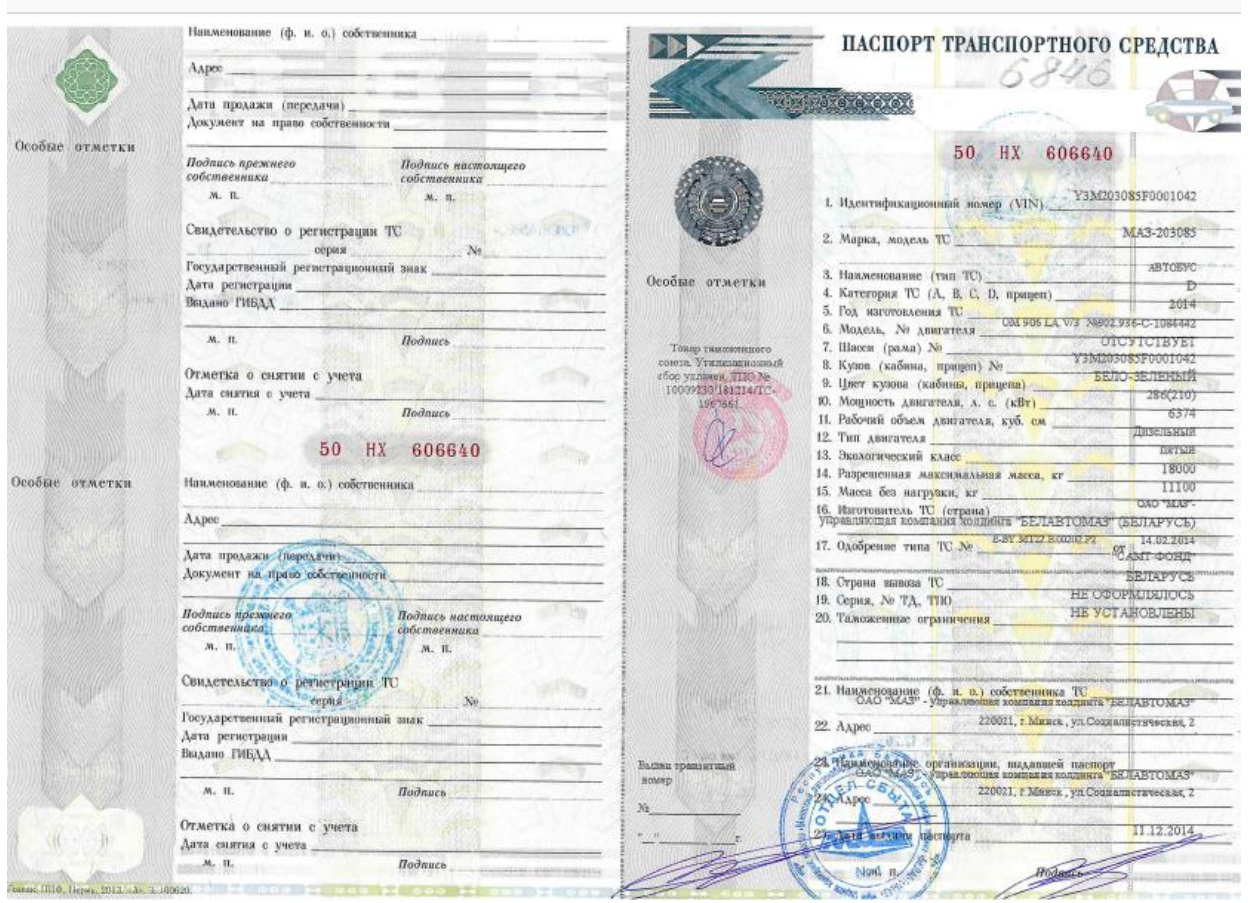 Наименование (ф. и. о.) собственника
Адрес
Дата продажи (передачи)
Документ на право собственности
Особые отметки
Подпись прежнего собственника
Подпись настоящего собственника
м. п.
м. п.
Свидетельство о регистрации ТС
серия №
Государственный регистрационный знак
Дата регистрации
Выдано ГИБДД
м. п. Подпись
Отметка о снятии с учета
Дата снятия с учета
м. п. Подпись
50 НХ 606640
Особые отметки
Наименование (ф. и. о.) собственника
Адрес
Дата продажи (передачи)
Документ на право собственности
Подпись прежнего собственника
Подпись настоящего собственника
м. п.
м. п.
Свидетельство о регистрации ТС
серия №
Государственный регистрационный знак
Дата регистрации
Выдано ГИБДД
м. п. Подпись
Отметка о снятии с учета
Дата снятия с учета
м. п. Подпись
ПАСПОРТ ТРАНСПОРТНОГО СРЕДСТВА
6846
50 НХ 606640
Особые отметки
Товар таможенного
союза. Утилизационный
сбор уплачен, ТПО №
10009230/181214/ТС-
1967661
Выдан транзитный
номер
№
" " г.
1. Идентификационный номер (VIN) Y3M203085F0001042
2. Марка, модель ТС МАЗ-203085
3. Наименование (тип ТС) АВТОБУС
4. Категория ТС (А, В, С, D, прицеп) D
5. Год изготовления ТС 2014
6. Модель, № двигателя OM 906 LA V/3 №902.936-C-1084442
7. Шасси (рама) № ОТСУТСТВУЕТ
8. Кузов (кабина, прицеп) № Y3M203085F0001042
9. Цвет кузова (кабины, прицепа) БЕЛО-ЗЕЛЕНЫЙ
10. Мощность двигателя, л. с. (кВт) 286(210)
11. Рабочий объем двигателя, куб. см 6374
12. Тип двигателя Дизельный
13. Экологический класс пятый
14. Разрешенная максимальная масса, кг 18000
15. Масса без нагрузки, кг 11100
16. Изготовитель ТС (страна) ОАО "МАЗ"-
управляющая компания холдинга "БЕЛАВТОМАЗ" (БЕЛАРУСЬ)
17. Одобрение типа ТС № от 14.02.2014
"САМТ-ФОНД"
18. Страна вывоза ТС БЕЛАРУСЬ
19. Серия, № ТД, ТПО НЕ ОФОРМЛЯЛОСЬ
20. Таможенные ограничения НЕ УСТАНОВЛЕНЫ
21. Наименование (ф. и. о.) собственника ТС
ОАО "МАЗ" - управляющая компания холдинга "БЕЛАВТОМАЗ"
22. Адрес 220021, г. Минск, ул. Социалистическая, 2
23. Наименование организации, выдавшей паспорт
ОАО "МАЗ" - управляющая компания холдинга "БЕЛАВТОМАЗ"
24. Адрес 220021, г. Минск, ул. Социалистическая, 2
25. Дата выдачи паспорта 11.12.2014
м. п. Подпись
ОТДЕЛ СБЫТА